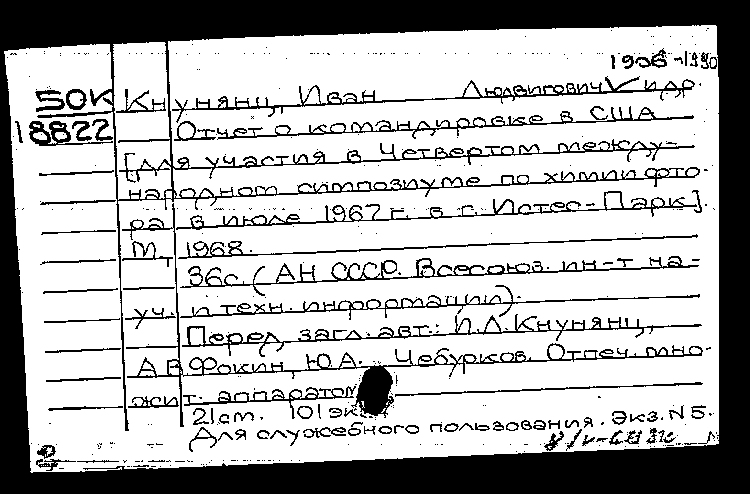 1906-1990
50К Кнунянц, Иван Людвигович и др.
18822 Отчет о командировке в США
[для участия в Четвертом между-
народном симпозиуме по химии фто-
ра в июле 1967 г. в г. Истес-Парк].
М., 1968.
36с. (АН СССР. Всесоюз. ин-т на-
уч. и техн. информации).
Перед загл. авт.: И.Л. Кнунянц,
А.В. Фокин, Ю.А. Чебурков. Отпеч. мно-
жит. аппаратом
21 см. 101 экз
Для служебного пользования. Экз. N 5.